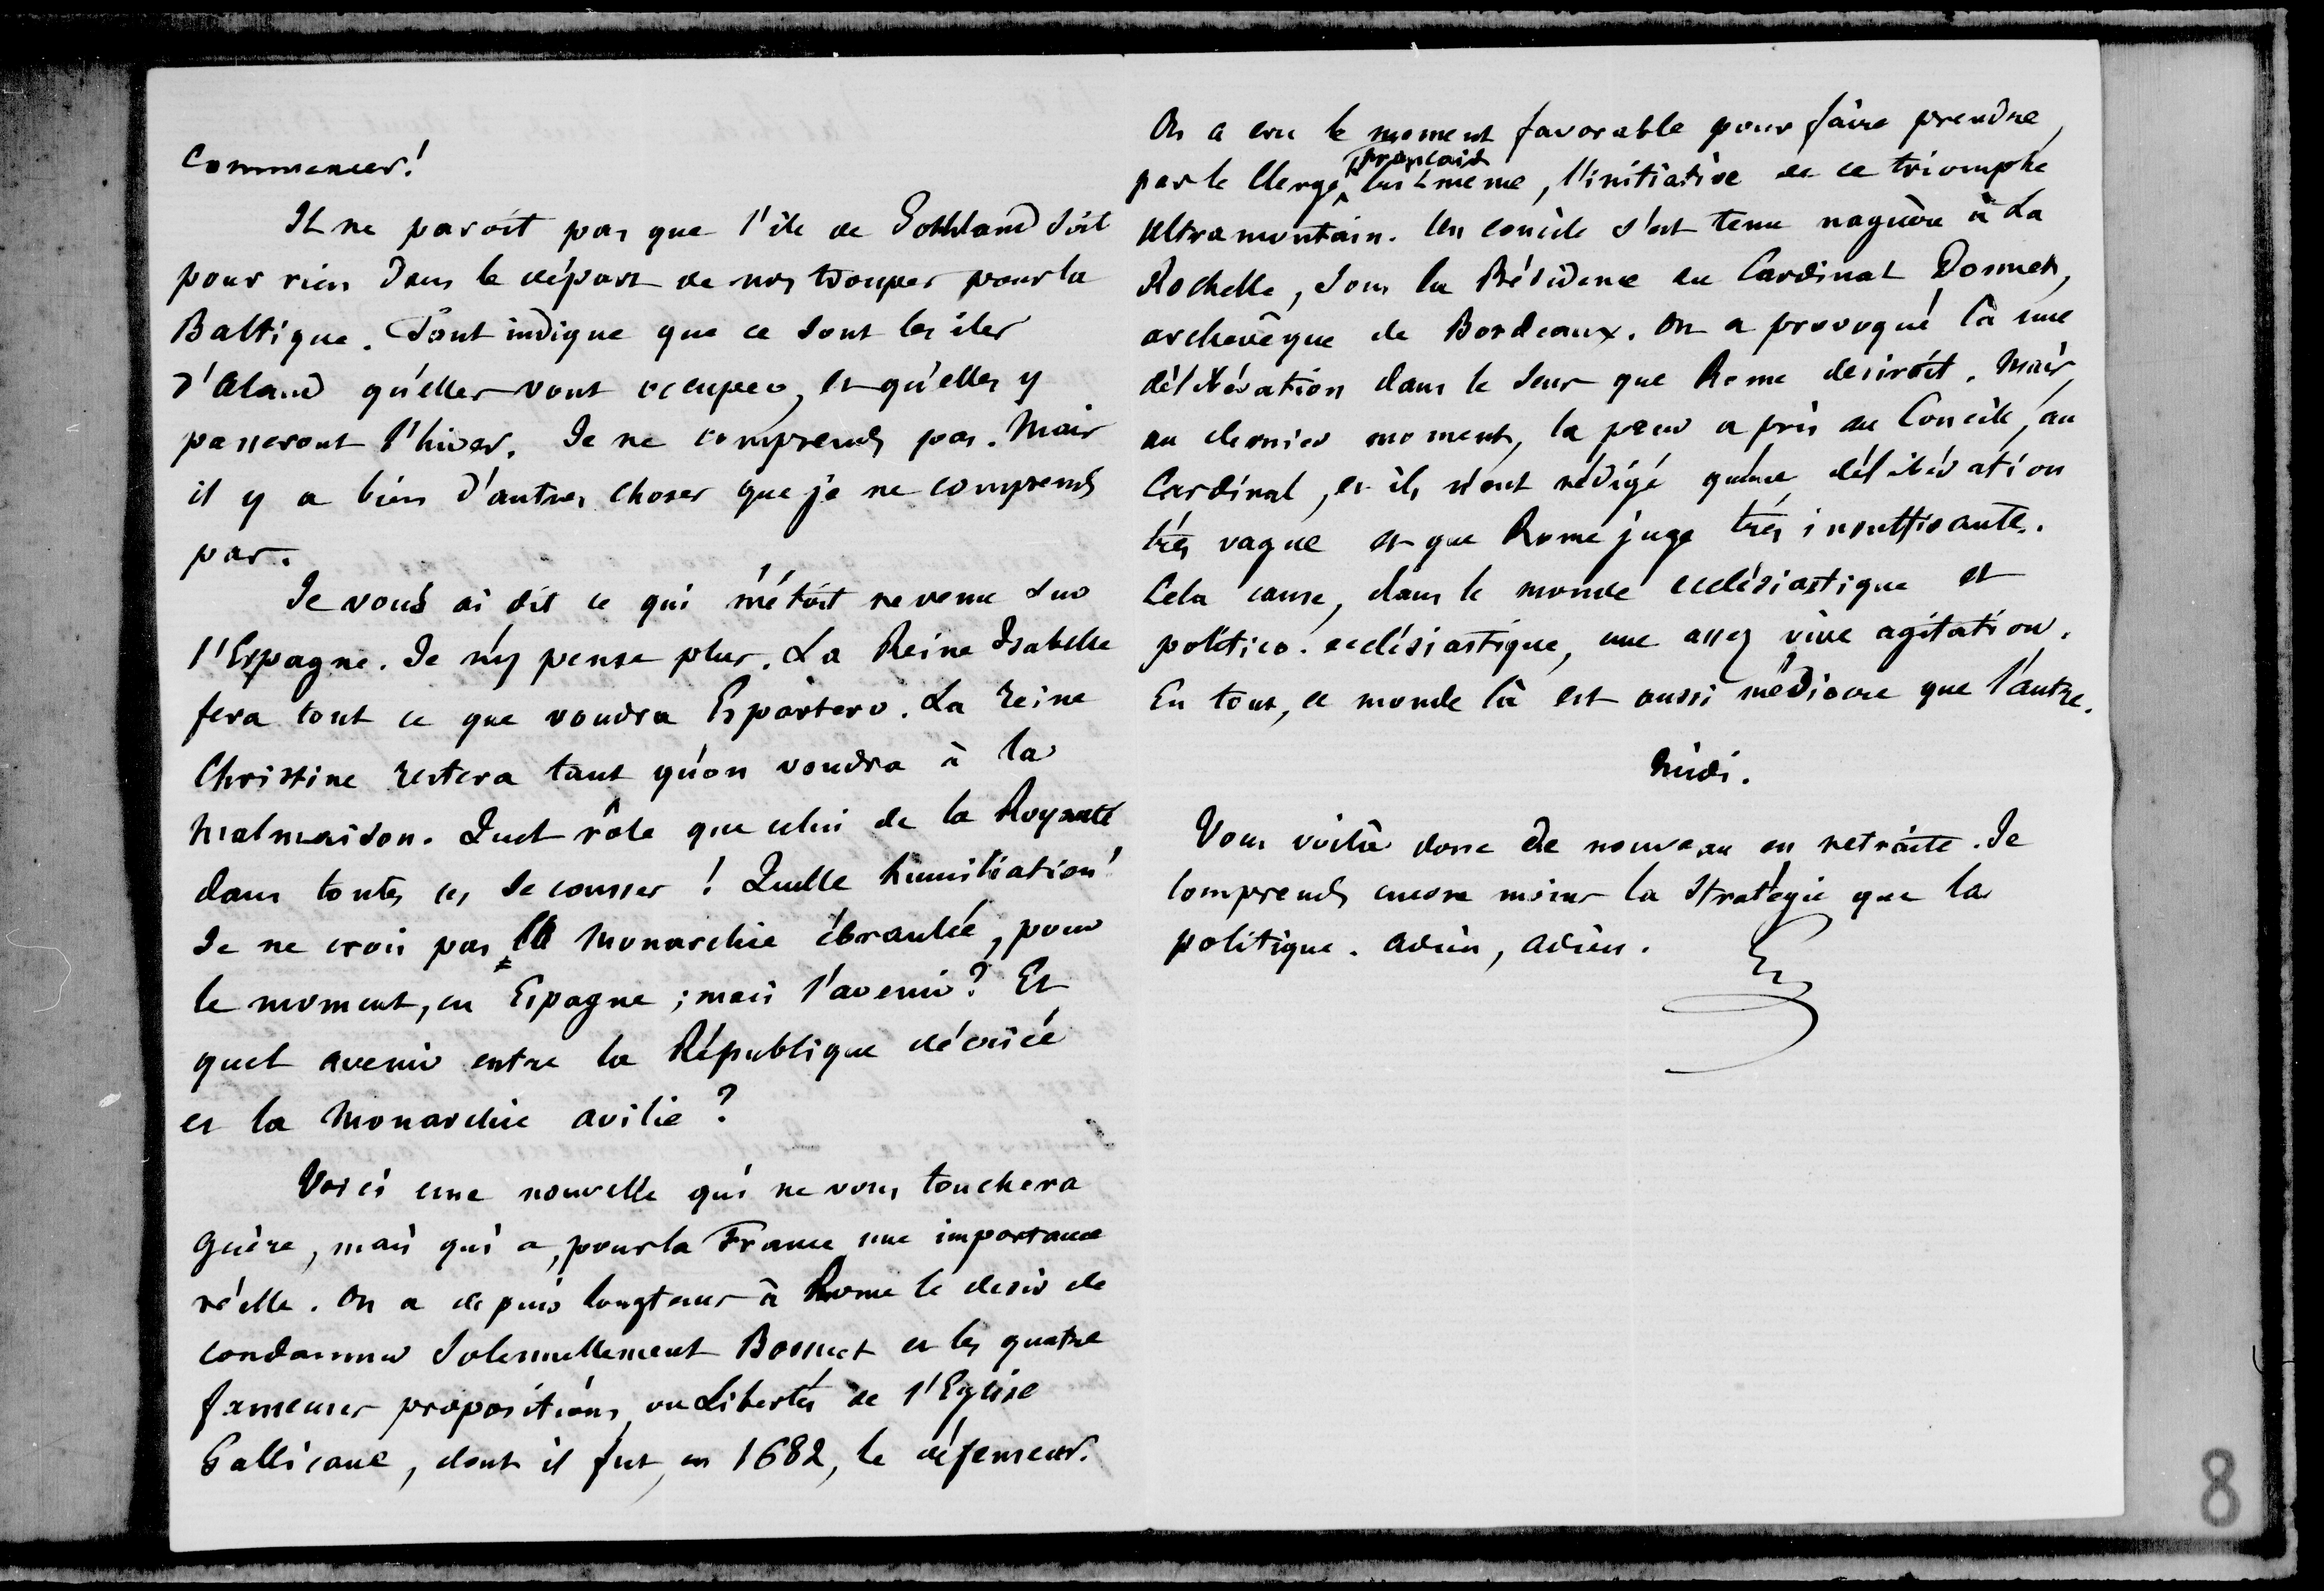 commencer!
Il ne paroit pas que l'ile de Gothland soit
pour rien dans le départ de nos troupes pour la
Baltique. Tout indique que ce sont les iles
d'Aland qu'elles vont occuper, et qu'elles y
passeront l'hiver. Je ne comprends pas. Mais
il y a bien d'autres choses que je ne comprends
pas.
Je vous ai dit ce qui m'étoit revenu sur
l'Espagne. Je n'y pense plus. La Reine Isabelle
fera tout ce que voudra Espartero. La reine
Christine restera tant qu'on voudra à la
Malmaison. Quel rôle que celui de la Royauté
dans toutes ces secousses ! Quelle humiliation!
Je ne crois pas la Monarchie ébranlée, pour
le moment, en Espagne ; mais l'avenir? Et
quel avenir entre la République décriée
et la Monarchie avilie ?
Voici une nouvelle qui ne vous touchera
guère, mais qui a, pour la France une importance
réelle. On a depuis longtems à Rome le desir de
condamner solennellement Bossuet et les quatre
fameuses propositions, ou Libertés de l'Eglise
Gallicane, dont il fut, en 1682, le défenseur.
On a cru le moment favorable pour faire prendre,
par le Clergé français lui-même, l'initiative de ce triomphe
ultramontain. Un concile s'est tenu naguère à La
Rochelle, sous la Présidence du Cardinal Donnet,
archevêque de Bordeaux. On a provoqué là une
délibération dans le sens que Rome desiroit. Mais,
au dernier moment, la peur a pris au Concile, au
Cardinal, et ils n'ont rédigé qu'une délibération
très vague et que Rome juge très insuffisante.
Cela cause, dans le monde ecclésiastique et
politico-ecclésiastique, une assez vive agitation.
En tout, ce monde là est aussi médiocre que l'autre.
Midi.
Vous voilà donc de nouveau en retraite. Je
comprends encore moins la stratégie que la
politique. Adieu, adieu.
8